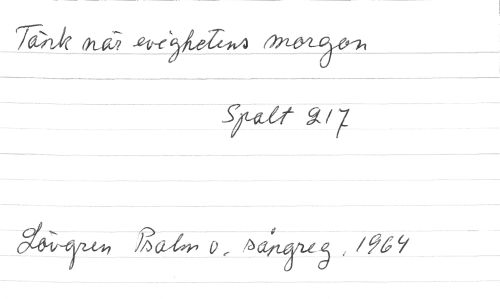 Tänk när evighetens morgon
Spalt 217
Lövgren Psalm o. sångreg. 1964